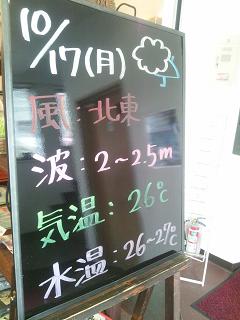 10/17(月)
風:北東
波:2~2.5m
気温:26℃
水温:26~27℃